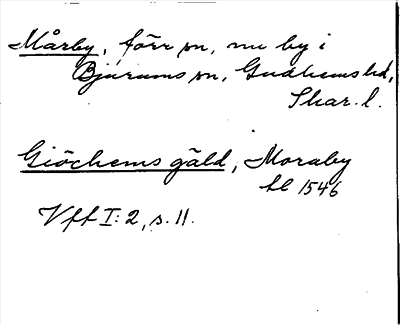 Mårby, förr sn, nu by i
Bjärums sn, Gudhems hd,
Skar. l.
Giöchems gäld, Moraby
hl 1546
Vff I:2, s. 11.